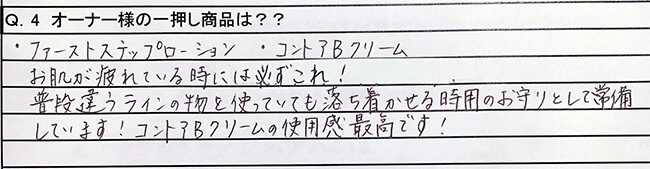 Q. 4 オーナー様の一押し商品は??
・ファーストステップローション ・コントアBクリーム
お肌が疲れている時には必ずこれ!
普段違うラインの物を使っていても落ち着かせる時用のお守りとして常備
しています!コントアBクリームの使用感最高です!